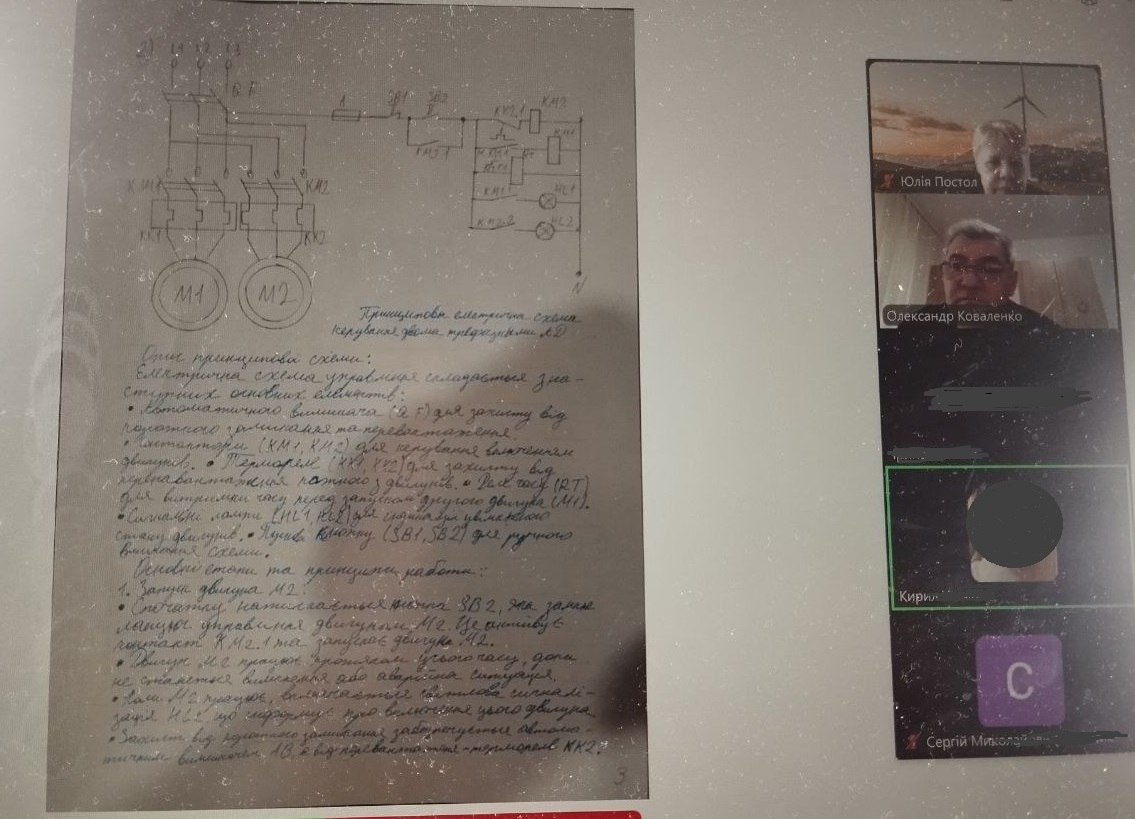 2) L1 L2 L3
QF
1 SB1 SB2 KK2.1 KM2
KM2.1 KM1
KM1 KM2
KM1.1 HL1
KM2.2 HL2
KK1 KK2
M1 M2
N
Принципова електрична схема
керування двома трифазними АД
Опис принципової схеми:
Електрична схема управління складається з на-
ступних основних елементів:
• Автоматичного вимикача (QF) для захисту від
короткого замикання та перевантаження.
• Контактори (KM1, KM2) для керування включенням
двигунів. • Термореле (KK1, KK2) для захисту від
перенавантаження кожного з двигунів. • Реле часу (RT)
для витримки часу перед запуском другого двигуна (M1).
• Сигнальні лампи (HL1, HL2) для сигналізації
стану двигунів. • кнопки (SB1, SB2) для ручного
вмикання схеми.
Основні етапи та принципи роботи:
1. Запуск двигуна M2.
• Спочатку натискається кнопка SB2, яка замикає
ланцюг управління двигуном M2. Це активує
контакт KM2.1 та запускає двигун M2.
• Двигун M2 працює протягом цього часу, доки
не станеться вимкнення або аварійна ситуація.
• Коли M2 працює, включається світлова сигналі-
зація HL2, що інформує про включення цього двигуна.
• Захист від короткого замикання забезпечується автома-
тичним вимикачем AB, а від перевантаження - термореле KK2.
3
Юлія Постол
Олександр Коваленко
Кирил
C
Сергій Миколай